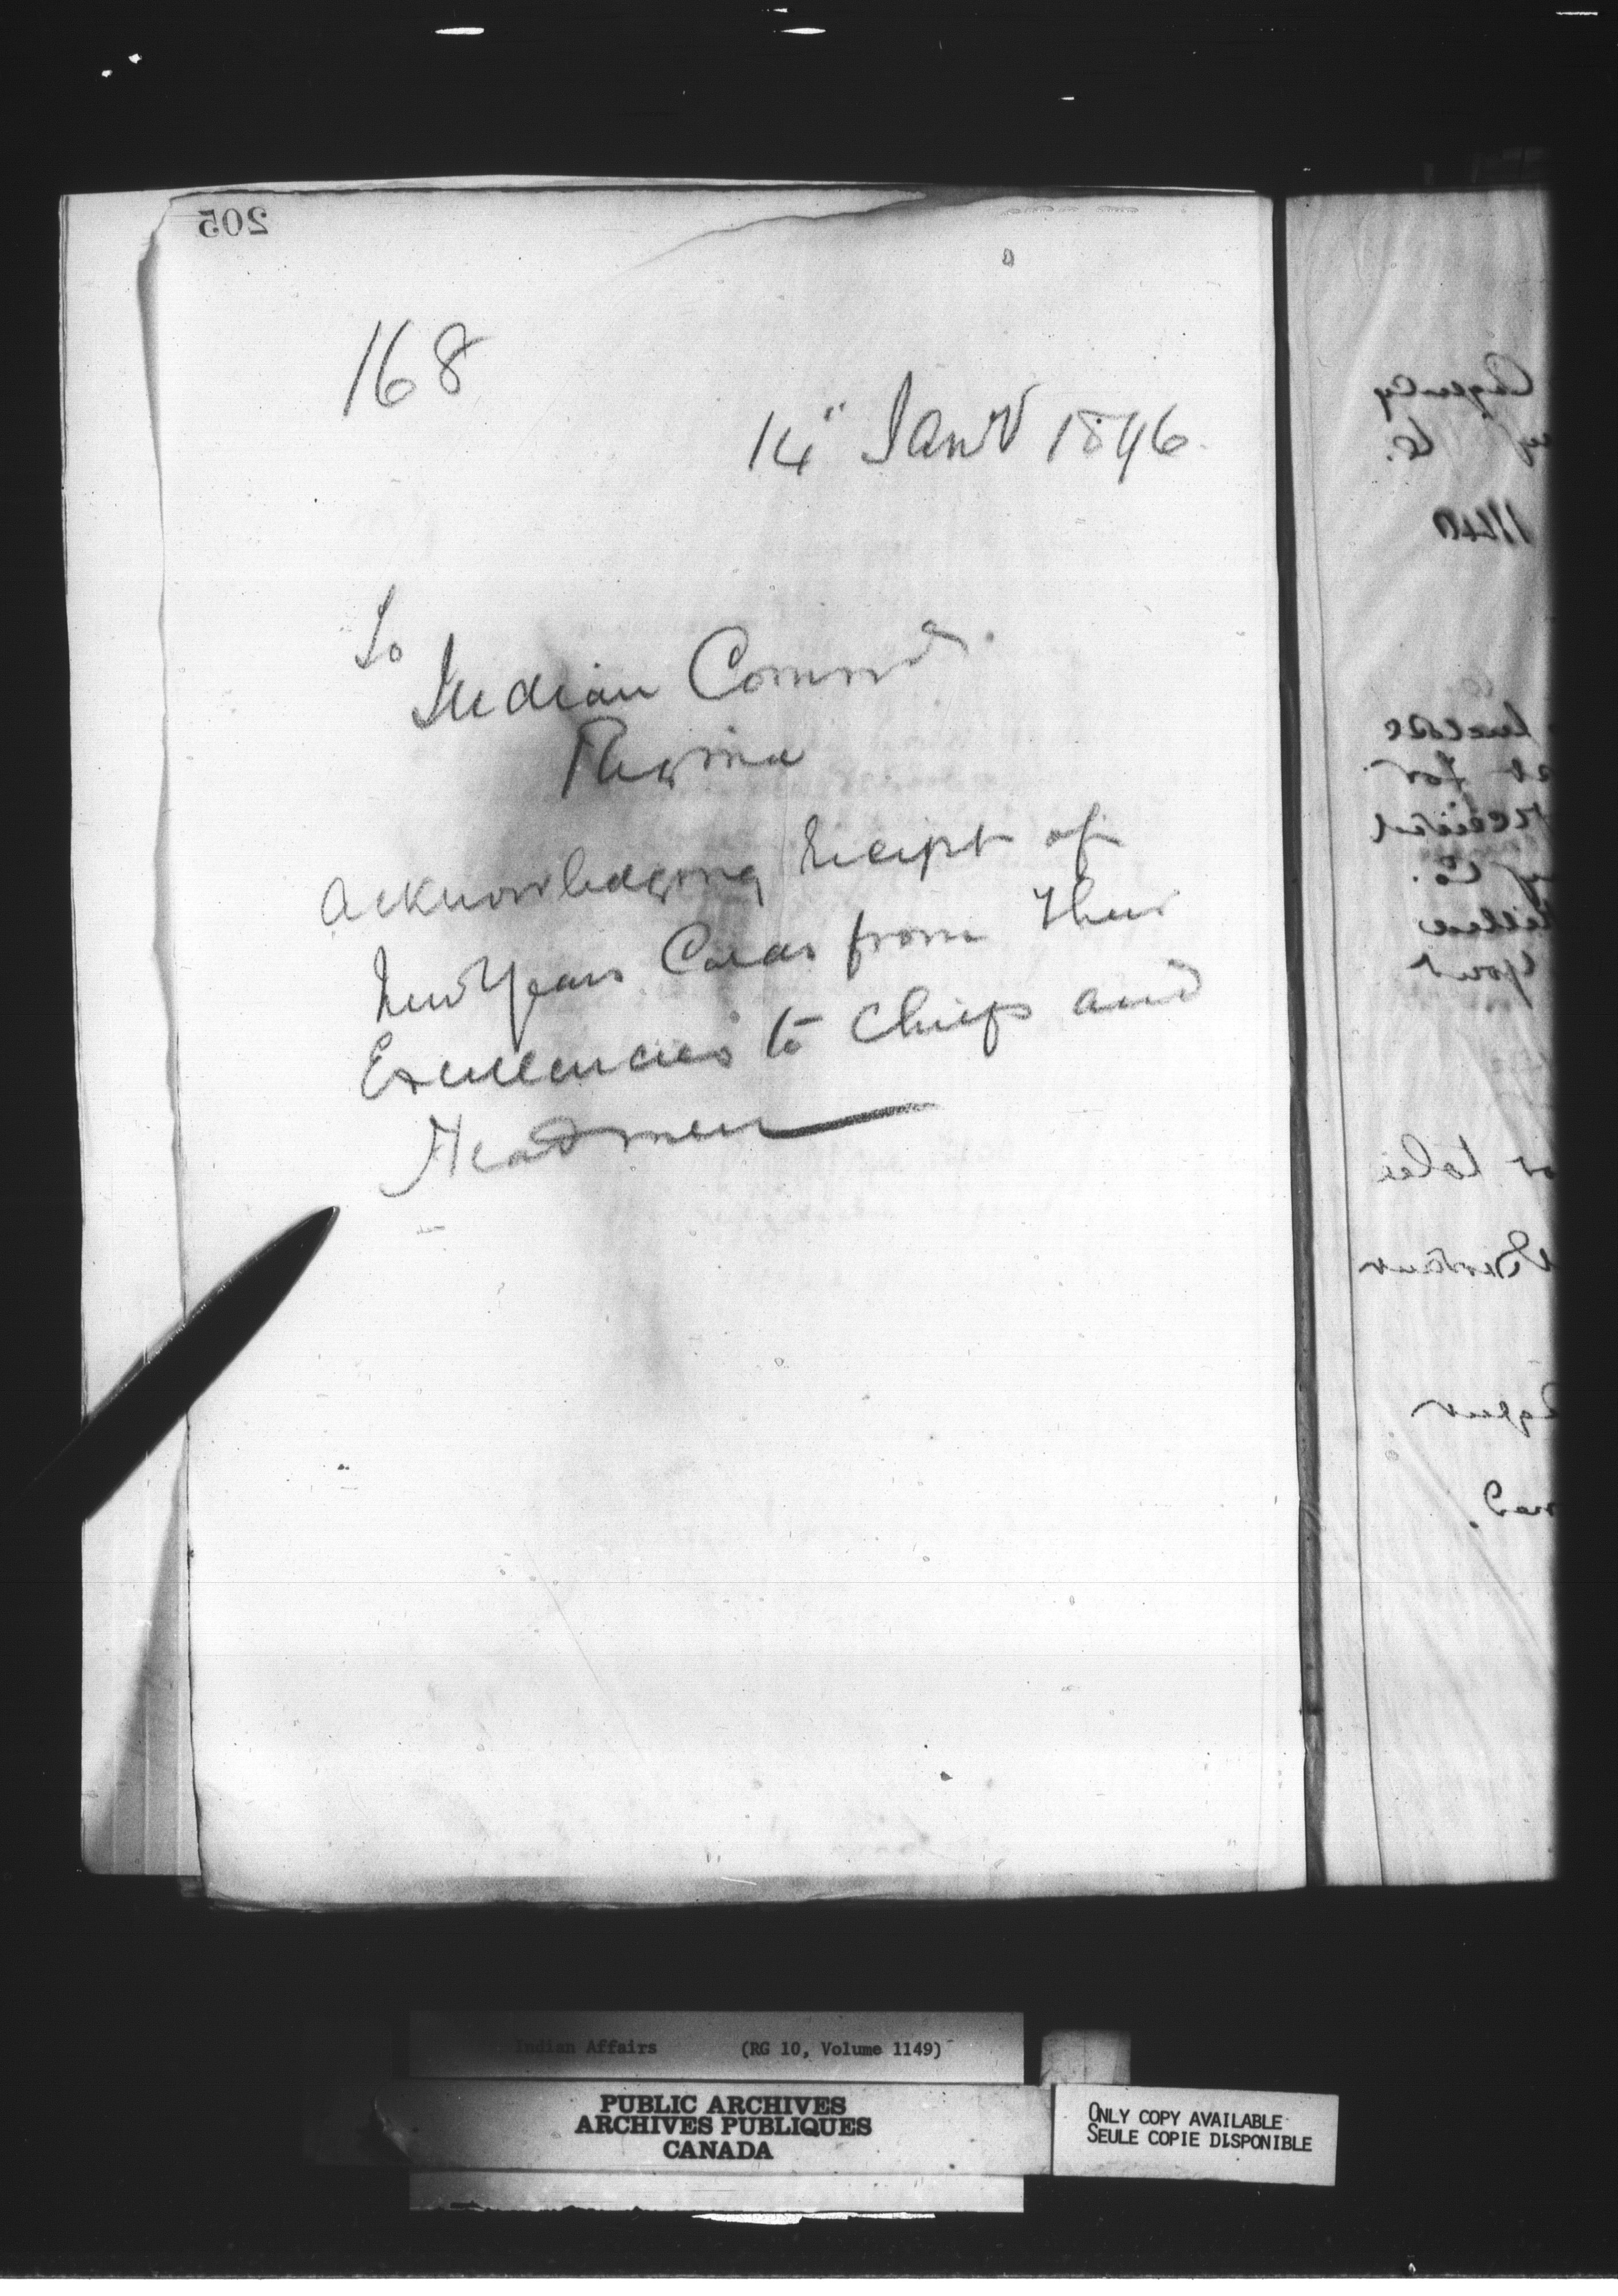 205
168
14" Jany 1896.
To
Indian Commr.
Regina
Acknowledging Receipt of
New Years Cards from Their
Excellencies to Chiefs and
Headmen
Agency
Co.
enclose
for
received
Co.
Your
Indian Affairs (RG 10, Volume 1149)
PUBLIC ARCHIVES
ARCHIVES PUBLIQUES
CANADA
ONLY COPY AVAILABLE
SEULE COPIE DISPONIBLE